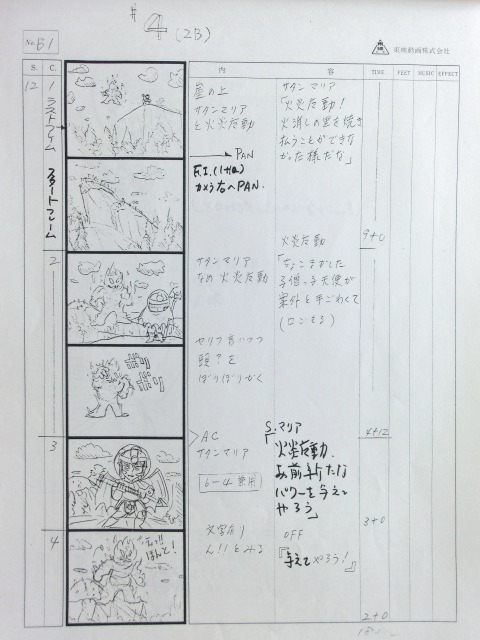 #4(2B)
No. B1
東映動画株式会社
S. C. 内 容 TIME FEET MUSIC EFFECT
12 1
ラストフレーム
スタートフレーム
崖の上
サタンマリア
と火炎反動
→PAN
F.I.(1+12)
カメラ右へPAN.
サタンマリア
「火炎反動!
火消しの里を焼き
払うことができな
かった様だな」
9+0
2
サタンマリア
なめ火炎反動
火炎反動
「ちょこまかした
小僧っ子天使が
案外と手ごわくて
セリフ言いつつ
頭?を
ぼりぼりかく
ボリ
ボリ
4+12
3
AC
サタンマリア
6-4兼用
S.マリア
「火炎反動.
お前に新たな
パワーを与えて
やろう」
3+0
4
えっ!!
ほんと!
ん!!とみる
OFF
『与えてやろう!』
2+0